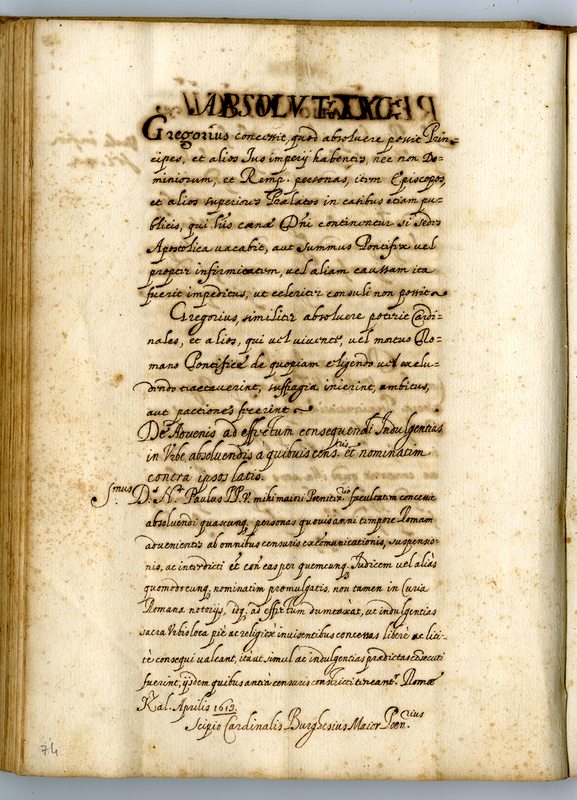 ABSOLVT
Gregorius concessit, quod absoluere possit Prin-
cipes, et alios Ius imperij habentes, nec non Do-
miniorum, et Remp. personas, item Episcopos,
et alios superiores Prælatos in casibus etiam pu-
blicis, qui his cœnæ Dñi continentur si sedes
Apostolica uacabit, aut summus Pontifex uel
propter infirmitatem, uel aliam caussam ita
fuerit impeditus, ut celeriter consuli non possit
Gregorius, similiter absoluere poterit Cardi-
nales, et alios, qui uel uiuente, uel mortuo Ro-
mano Pontifice de quopiam eligendo uel exclu-
dendo tractauerint, suffragia inierint, ambitus,
aut pactiones fecerint
De Aduenis ad effectum consequendi Indulgentias
in Vrbe, absoluendis a quibuis cens.ris et nominatim
contra ipsos latis.
Smus D. N. Paulus PP. V. mihi maiori Pœnitᵣⁱᵒ facultatem concessit
absoluendi quascunq. personas quouis anni tempore Romam
aduenientes ab omnibus censuris excomunicationis, suspensio-
nis, ac interdicti et con eas per quemcunq. Iudicem uel aliàs
quomodocunq. nominatim promulgatis, non tamen in Curia
Romana notorijs, idq. ad effectum dumtaxat, ut indulgentias
sacra Vrbis loca piè ac religiosè inuisentibus concessas liberè ac lici-
tè consequi ualeant, ita ut simul ac indulgentias prædictas cõsecuti
fuerint, ijsdem quibus antea censuris constricti teneantr. Romæ
Kal. Aprilis 1613.
Scipio Cardinalis Burghesius Maior Pœn.rius
74